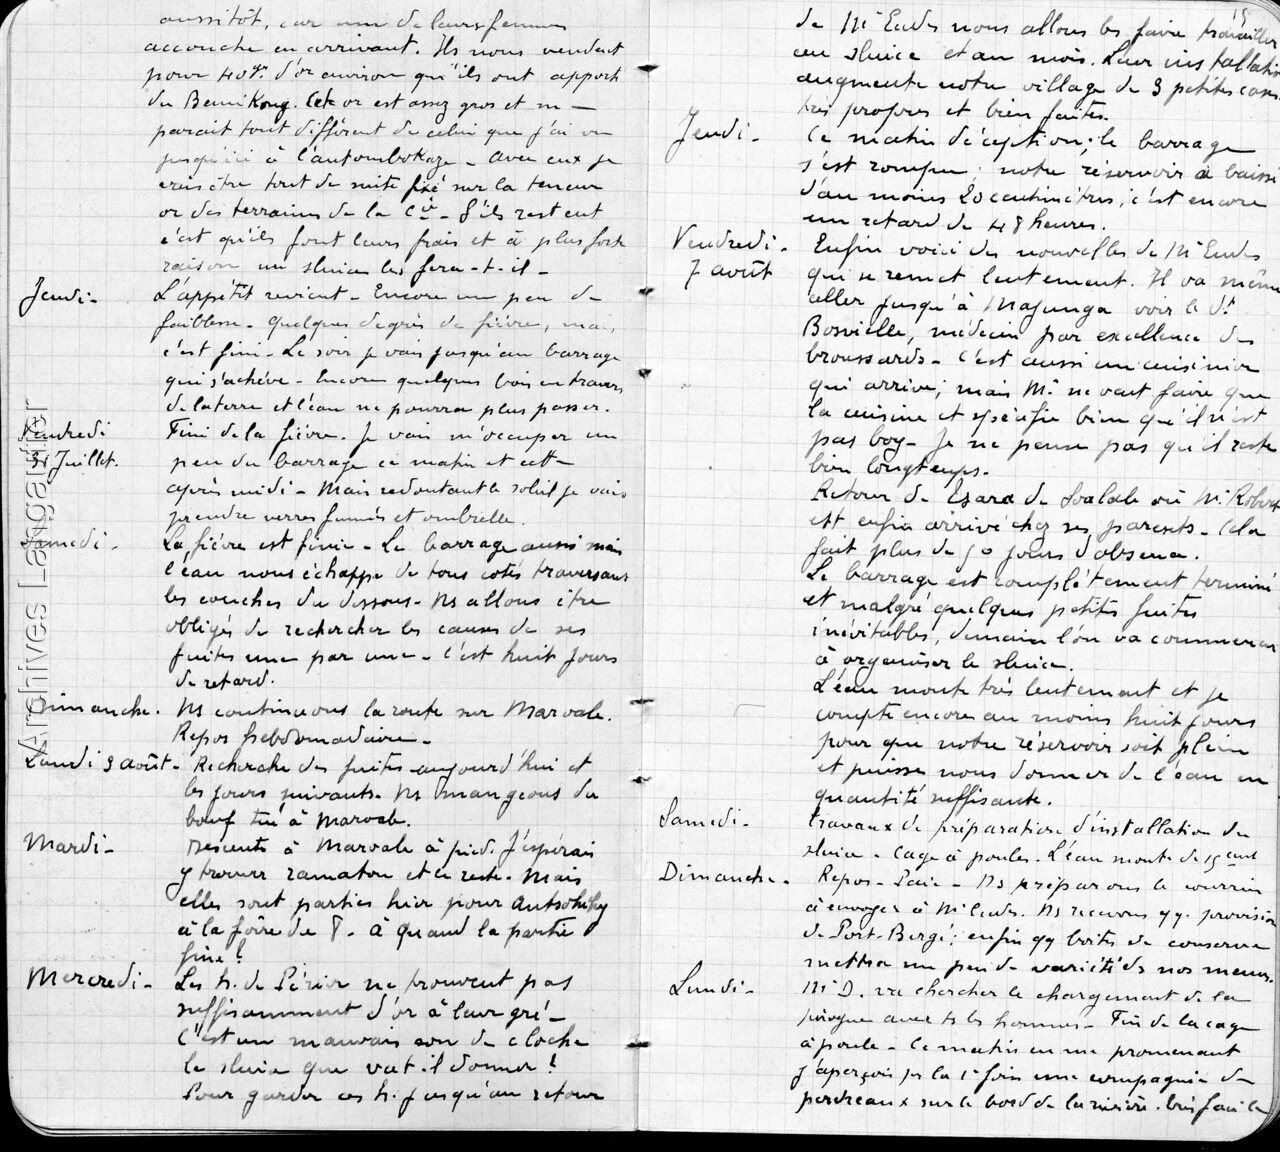 aussitôt, car une de leurs femmes
accouche en arrivant. Ils nous vendent
pour 40gr d'or environ qu'ils ont apporté
du Bemikong. Cet or est assez gros et me
parait tout différent de celui que j'ai vu
jusqu'ici à l'
avec eux je
vais être tout de suite fixé sur la teneur
or des terrains de la Cie - S'ils restent
c'est qu'ils font leurs frais et à plus forte
raison un sluice les fera-t-il -
Jeudi - L'appétit revient - Encore un peu de
faiblesse - quelques degrés de fièvre, mais
c'est fini - Le soir je vais jusqu'au barrage
qui s'achève - Encore quelques bois en travers
de la terre et l'eau ne pourra plus passer.
Vendredi Fini de la fièvre. Je vais m'occuper un
31 Juillet. peu du barrage ce matin et cette
après midi - Mais redoutant le soleil je vais
prendre verres fumés et ombrelle.
Samedi - La fièvre est finie - Le barrage aussi mais
l'eau nous échappe de tous cotés traversant
les couches du dessous - Ns allons être
obligés de rechercher les causes de ses
fuites une par une - C'est huit jours
de retard.
Dimanche. Ns continuons la route sur Marvale.
Repos hebdomadaire -
Lundi 3 août - Recherche des fuites aujourd'hui et
les jours suivants. Ns mangeons du
bœuf tué à Marvale.
Mardi - Descente à Marvale à pied. J'espérais
y trouver ramatou et le reste - Mais
elles sont parties hier pour Antsohihy
à la foire du 8. à quand la partie
fine !
Mercredi - Les h. de Périer ne trouvent pas
suffisamment d'or à leur gré -
C'est un mauvais son de cloche
le sluice que va t-il donner !
Pour garder ces h. jusqu'au retour
15
de Mr Eudes nous allons les faire travailler
au sluice et au mois. Leur installation
augmente notre village de 3 petites cases
très propres et bien faites.
Jeudi - Ce matin déception ; le barrage
s'est rompu ; notre réservoir a baissé
d'au moins 20 centimètres ; c'est encore
un retard de 48 heures.
Vendredi - Enfin voici des nouvelles de Mr Eudes
7 août qui se remet lentement. Il va même
aller jusqu'à Majunga voir le dr
médecin par excellence des
broussards - C'est aussi un cuisinier
qui arrive ; mais Mr ne veut faire que
la cuisine et spécifie bien qu'il n'est
pas boy - Je ne pense pas qu'il reste
bien longtemps -
Retour de de Soalala où Mr Robert
est enfin arrivé chez ses parents - Cela
fait plus de 50 jours d'absence.
Le barrage est complètement terminé
et malgré quelques petites fuites
inévitables, demain l'on va commencer
à organiser le sluice.
L'eau monte très lentement et je
compte encore au moins huit jours
pour que notre réservoir soit plein
et puisse nous donner de l'eau en
quantité suffisante.
Samedi - travaux de préparation d'installation du
sluice - Cage à poules - L'eau monte de 15 cent
Dimanche - Repos - Paie - Ns préparons le courrier
à envoyer à Mr Eudes. Ns recevons qq. provisions
de Port-Bergé ; enfin qq boites de conserve
mettra un peu de variété ds nos menus.
Lundi - Mr D. va chercher le chargement de la
pirogue avec ts les hommes - Fin de la cage
à poule - Ce matin en me promenant
j'aperçois pr la 1e fois une compagnie de
perdreaux sur le bord de la rivière.
Archives Langanier